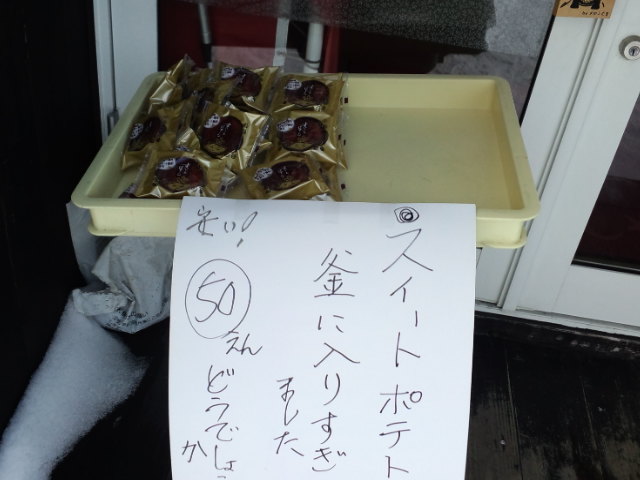 ◎スィートポテト
釜に入りすぎ
ました
安い！
50
えん
どうでしょう
か